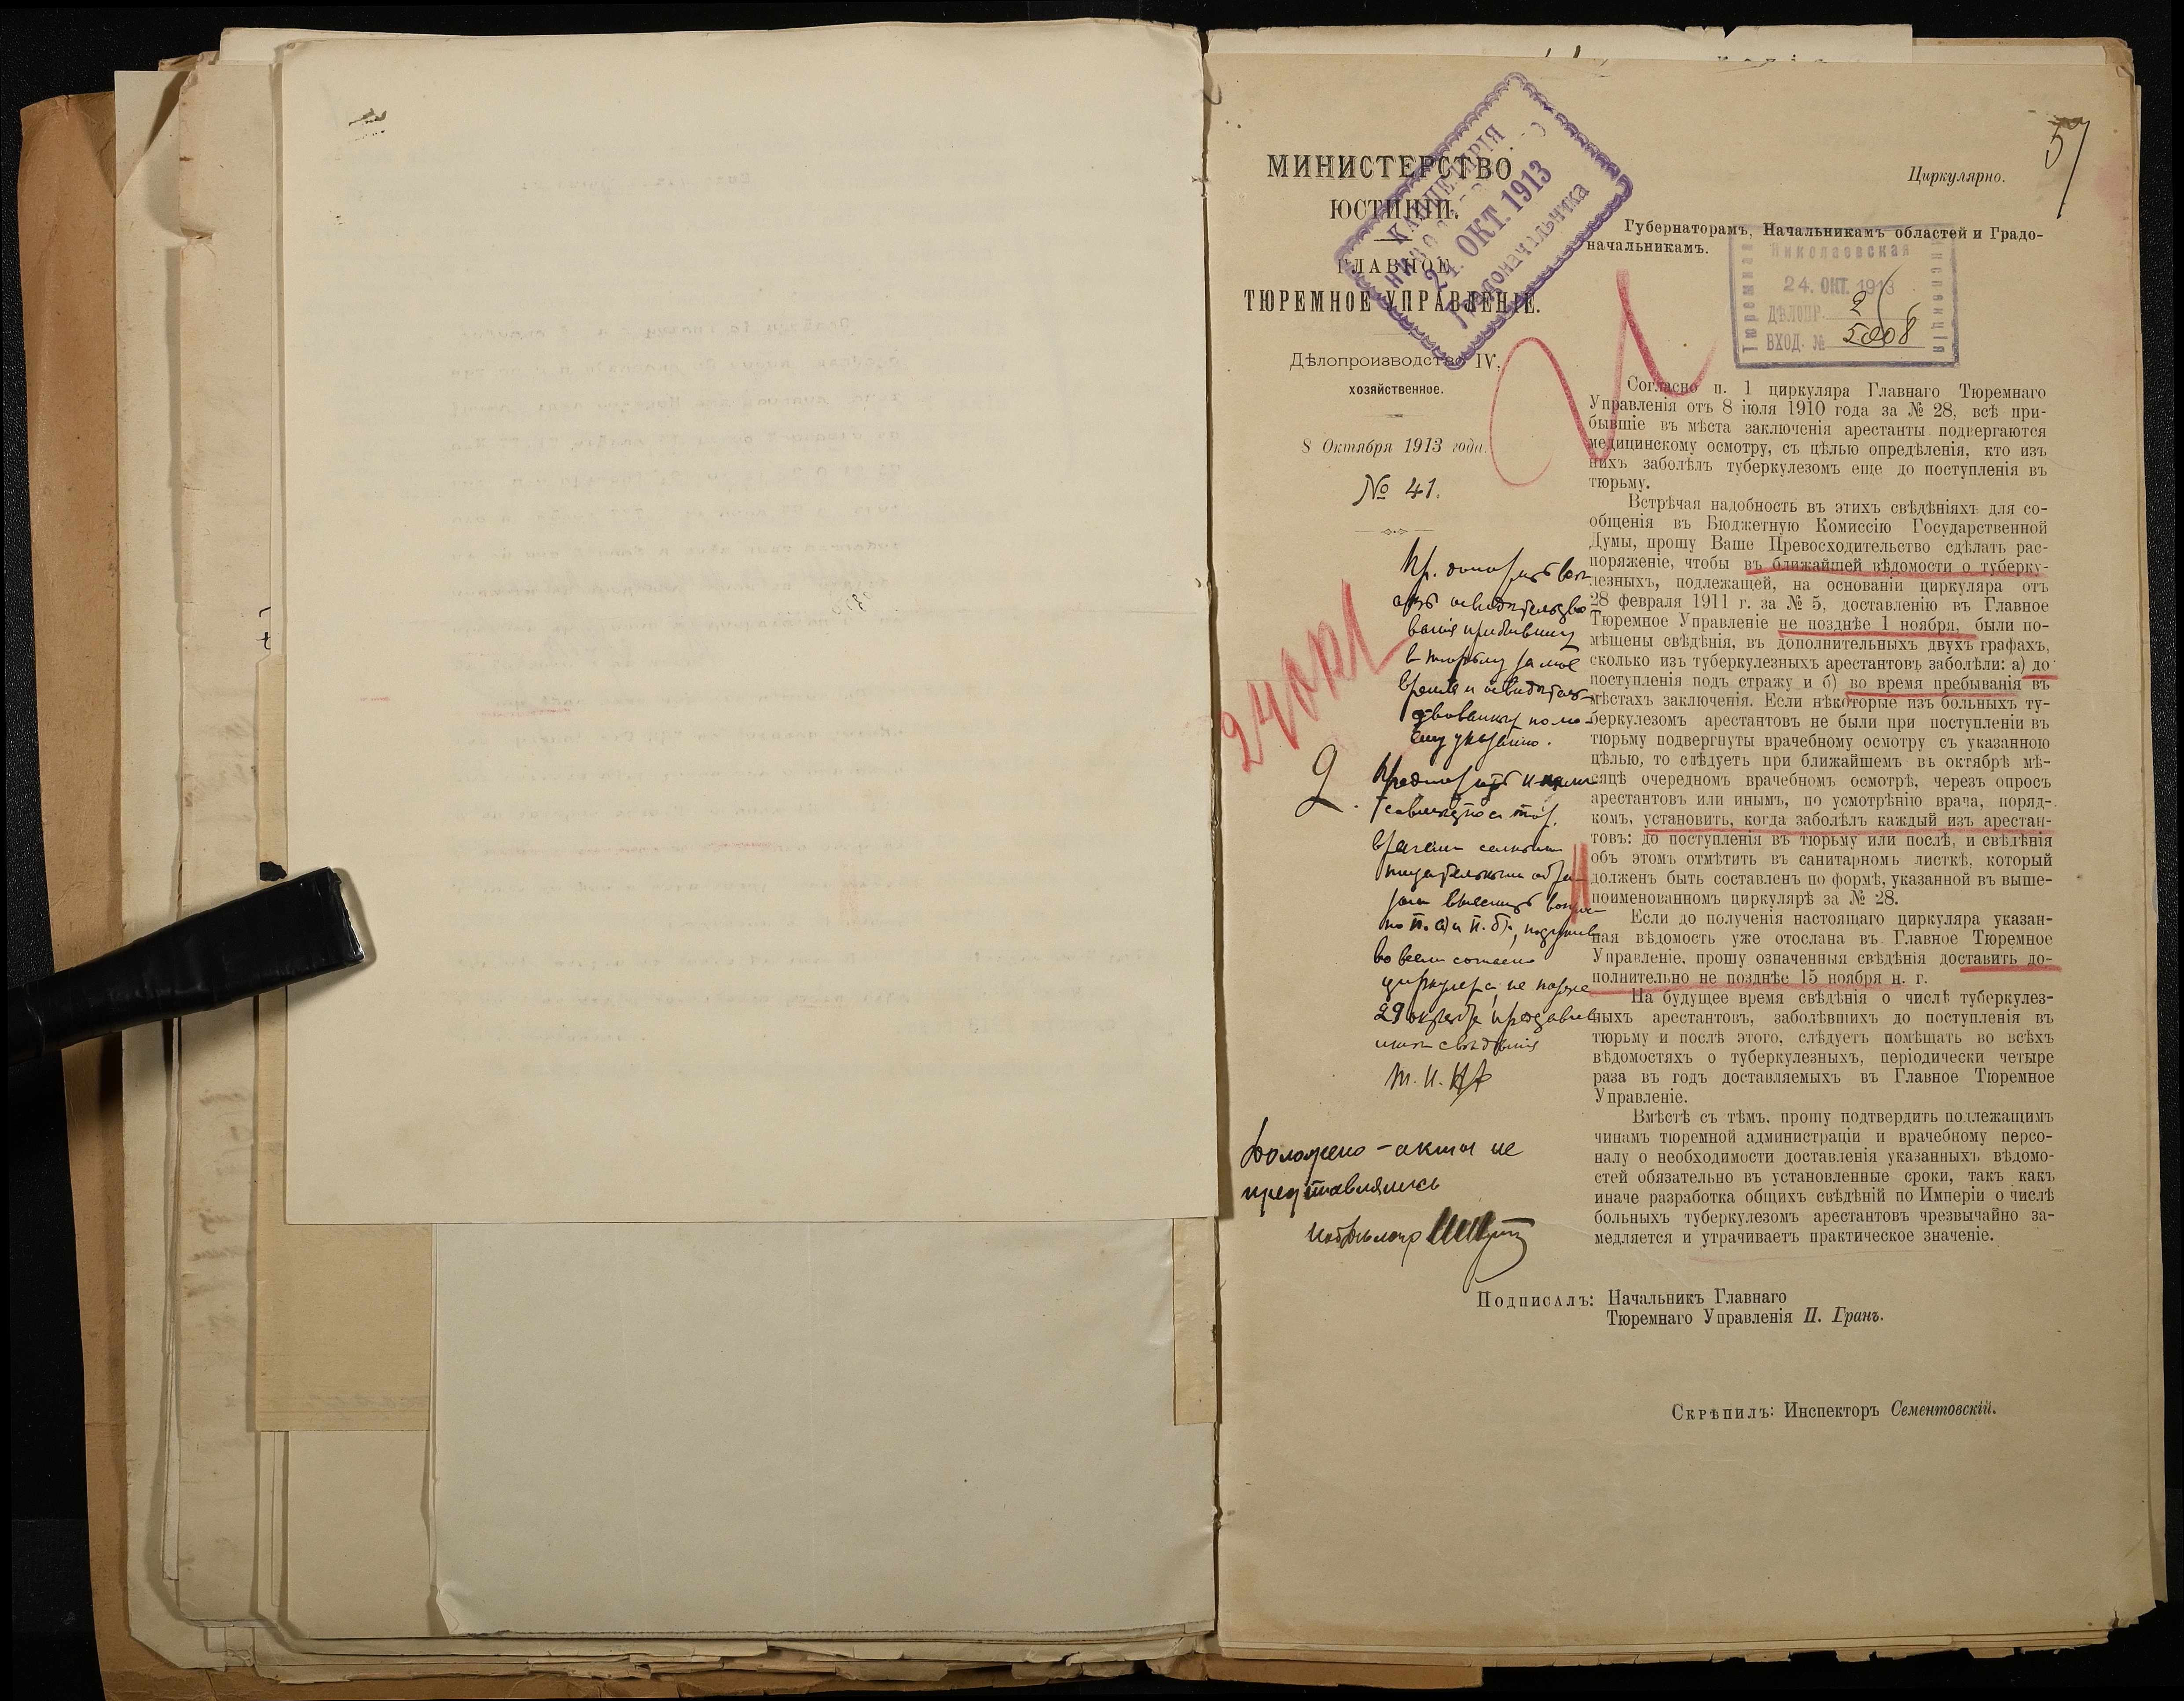 57
Циркулярно.
МИНИСТЕРСТВО
ЮСТИЦІИ.
ГЛАВНОЕ
ТЮРЕМНОЕ УПРАВЛЕНІЕ.
Дѣлопроизводство IV,
хозяйственное.
8 Октября 1913 года.
№ 41.
КАНЦЕЛЯРІЯ
24. ОКТ. 1913
Градоначальника
Губернаторамъ, Начальникамъ областей и Градо-
начальникамъ.
Тюремная
Николаевская
Инспекція
24. ОКТ. 1913
ДѢЛОПР. 2
ВХОД. № 5008
Согласно п. 1 циркуляра Главнаго Тюремнаго
Управленія отъ 8 іюля 1910 года за № 28, всѣ при-
бывшіе въ мѣста заключенія арестанты подвергаются
медицинскому осмотру, съ цѣлью опредѣленія, кто изъ
нихъ заболѣлъ туберкулезомъ еще до поступленія въ
тюрьму.
Встрѣчая надобность въ этихъ свѣдѣніяхъ для со-
общенія въ Бюджетную Комиссію Государственной
Думы, прошу Ваше Превосходительство сдѣлать рас-
поряженіе, чтобы въ ближайшей вѣдомости о туберку-
лезныхъ, подлежащей, на основаніи циркуляра отъ
28 февраля 1911 г. за № 5, доставленію въ Главное
Тюремное Управленіе не позднѣе 1 ноября, были по-
мѣщены свѣдѣнія, въ дополнительныхъ двухъ графахъ,
сколько изъ туберкулезныхъ арестантовъ заболѣли: а) до
поступленія подъ стражу и б) во время пребыванія въ
мѣстахъ заключенія. Если нѣкоторые изъ больныхъ ту-
беркулезомъ арестантовъ не были при поступленіи въ
тюрьму подвергнуты врачебному осмотру съ указанною
цѣлью, то слѣдуетъ при ближайшемъ въ октябрѣ мѣ-
сяцѣ очередномъ врачебномъ осмотрѣ, черезъ опросъ
арестантовъ или инымъ, по усмотрѣнію врача, поряд-
комъ, установить, когда заболѣлъ каждый изъ арестан-
товъ: до поступленія въ тюрьму или послѣ, и свѣдѣнія
объ этомъ отмѣтить въ санитарномъ листкѣ, который
долженъ быть составленъ по формѣ, указанной въ выше-
поименованномъ циркулярѣ за № 28.
Если до полученія настоящаго циркуляра указан-
ная вѣдомость уже отослана въ Главное Тюремное
Управленіе, прошу означенныя свѣдѣнія доставить до-
полнительно не позднѣе 15 ноября н. г.
На будущее время свѣдѣнія о числѣ туберкулез-
ныхъ арестантовъ, заболѣвшихъ до поступленія въ
тюрьму и послѣ этого, слѣдуетъ помѣщать во всѣхъ
вѣдомостяхъ о туберкулезныхъ, періодически четыре
раза въ годъ доставляемыхъ въ Главное Тюремное
Управленіе.
Вмѣстѣ съ тѣмъ, прошу подтвердить подлежащимъ
чинамъ тюремной администраціи и врачебному персо-
налу о необходимости доставленія указанныхъ вѣдомо-
стей обязательно въ установленные сроки, такъ какъ
иначе разработка общихъ свѣдѣній по Имперіи о числѣ
больныхъ туберкулезомъ арестантовъ чрезвычайно за-
медляется и утрачиваетъ практическое значеніе.
24 окт
в тюрьму за мое
время и освидѣтель-
ствованныхъ по мо-
ему указанію.
2.
29 октября представ
Доложено - акты не
представлялись
Подписалъ: Начальникъ Главнаго
Тюремнаго Управленія П. Гранъ.
Скрѣпилъ: Инспекторъ Сементовскій.